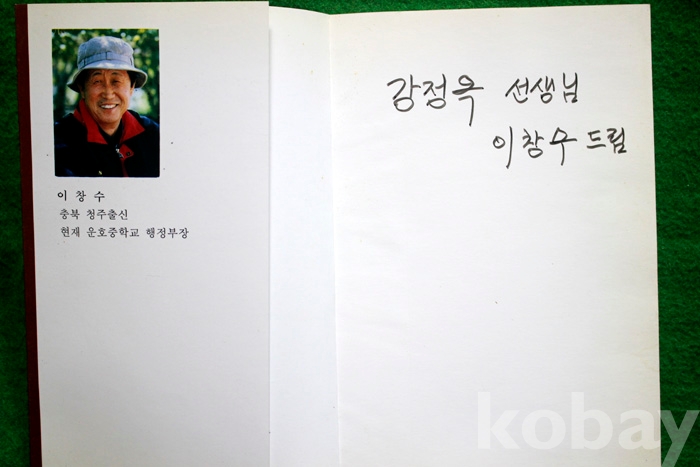 이 창 수
충북 청주출신
현재 운호중학교 행정부장
강정옥 선생님
이창수 드림
kobay